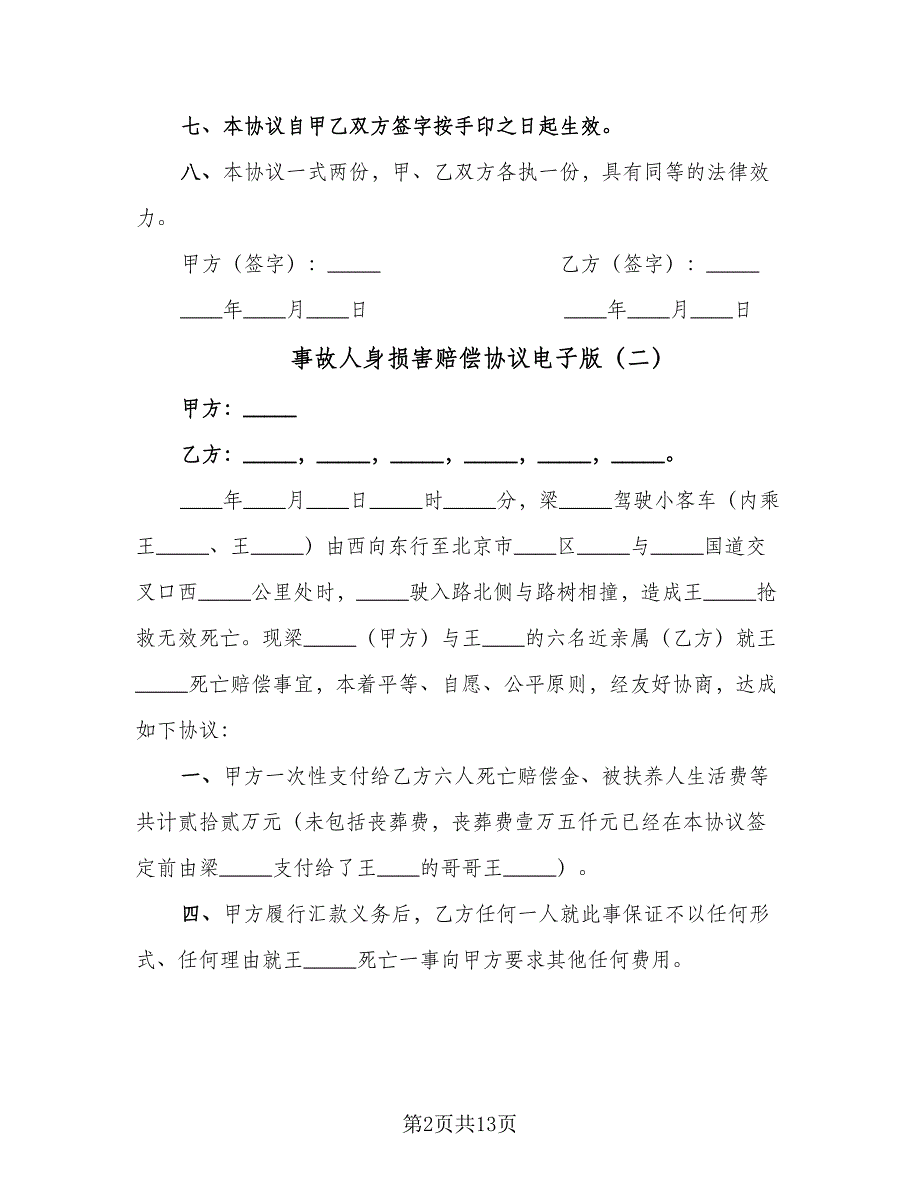 七、本协议自甲乙双方签字按手印之日起生效。
八、本协议一式两份，甲、乙双方各执一份，具有同等的法律效
力。
甲方（签字）：_____ 乙方（签字）：_____
____年____月____日 ____年____月____日
事故人身损害赔偿协议电子版（二）
甲方：_____
乙方：_____，_____，_____，_____，_____，_____。
____年____月____日_____时_____分，梁_____驾驶小客车（内乘
王_____、王_____）由西向东行至北京市____区_____与_____国道交
叉口西_____公里处时，_____驶入路北侧与路树相撞，造成王_____抢
救无效死亡。现梁_____（甲方）与王____的六名近亲属（乙方）就王
_____死亡赔偿事宜，本着平等、自愿、公平原则，经友好协商，达成
如下协议：
一、甲方一次性支付给乙方六人死亡赔偿金、被扶养人生活费等
共计贰拾贰万元（未包括丧葬费，丧葬费壹万五仟元已经在本协议签
定前由梁_____支付给了王____的哥哥王_____）。
四、甲方履行汇款义务后，乙方任何一人就此事保证不以任何形
式、任何理由就王_____死亡一事向甲方要求其他任何费用。
第2页共13页